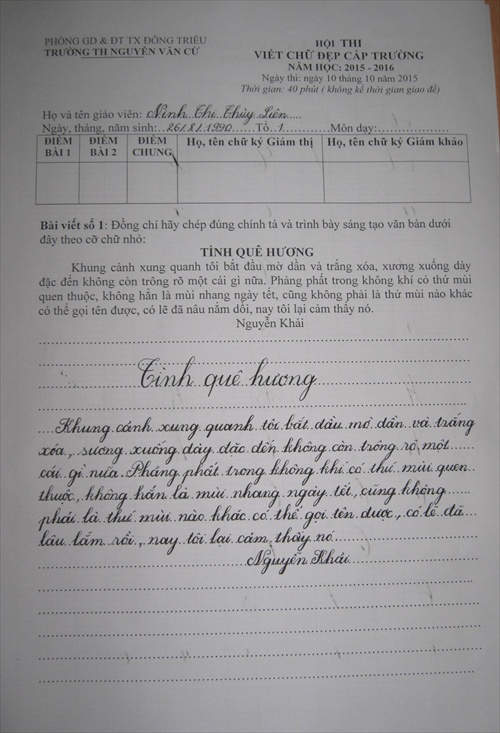 PHÒNG GD & ĐT TX ĐÔNG TRIỀU
TRƯỜNG TH NGUYỄN VĂN CỪ
HỘI THI
VIẾT CHỮ ĐẸP CẤP TRƯỜNG
NĂM HỌC: 2015 - 2016
Ngày thi: ngày 10 tháng 10 năm 2015
Thời gian: 40 phút ( không kể thời gian giao đề)
Họ và tên giáo viên: Ninh Thị Thùy Liên
Ngày, tháng, năm sinh: 26/8/1990 Tổ 1 Môn dạy:
ĐIỂM BÀI 1 ĐIỂM BÀI 2 ĐIỂM CHUNG Họ, tên chữ ký Giám thị Họ, tên chữ ký Giám khảo
Bài viết số 1: Đồng chí hãy chép đúng chính tả và trình bày sáng tạo văn bản dưới
đây theo cỡ chữ nhỏ:
TÌNH QUÊ HƯƠNG
Khung cảnh xung quanh tôi bắt đầu mờ dần và trắng xóa, xương xuống dày
đặc đến không còn trông rõ một cái gì nữa. Phảng phất trong không khí có thứ mùi
quen thuộc, không hẳn là mùi nhang ngày tết, cũng không phải là thứ mùi nào khác
có thể gọi tên được, có lẽ đã nâu nắm dồi, nay tôi lại cảm thấy nó.
Nguyễn Khải
Tình quê hương
Khung cảnh xung quanh tôi bắt đầu mờ dần và trắng
xóa, sương xuống dày đặc đến không còn trông rõ một
cái gì nữa. Phảng phất trong không khí có thứ mùi quen
thuộc, không hẳn là mùi nhang ngày tết, cũng không
phải là thứ mùi nào khác có thể gọi tên được, có lẽ đã
lâu lắm rồi, nay tôi lại cảm thấy nó
Nguyễn Khải